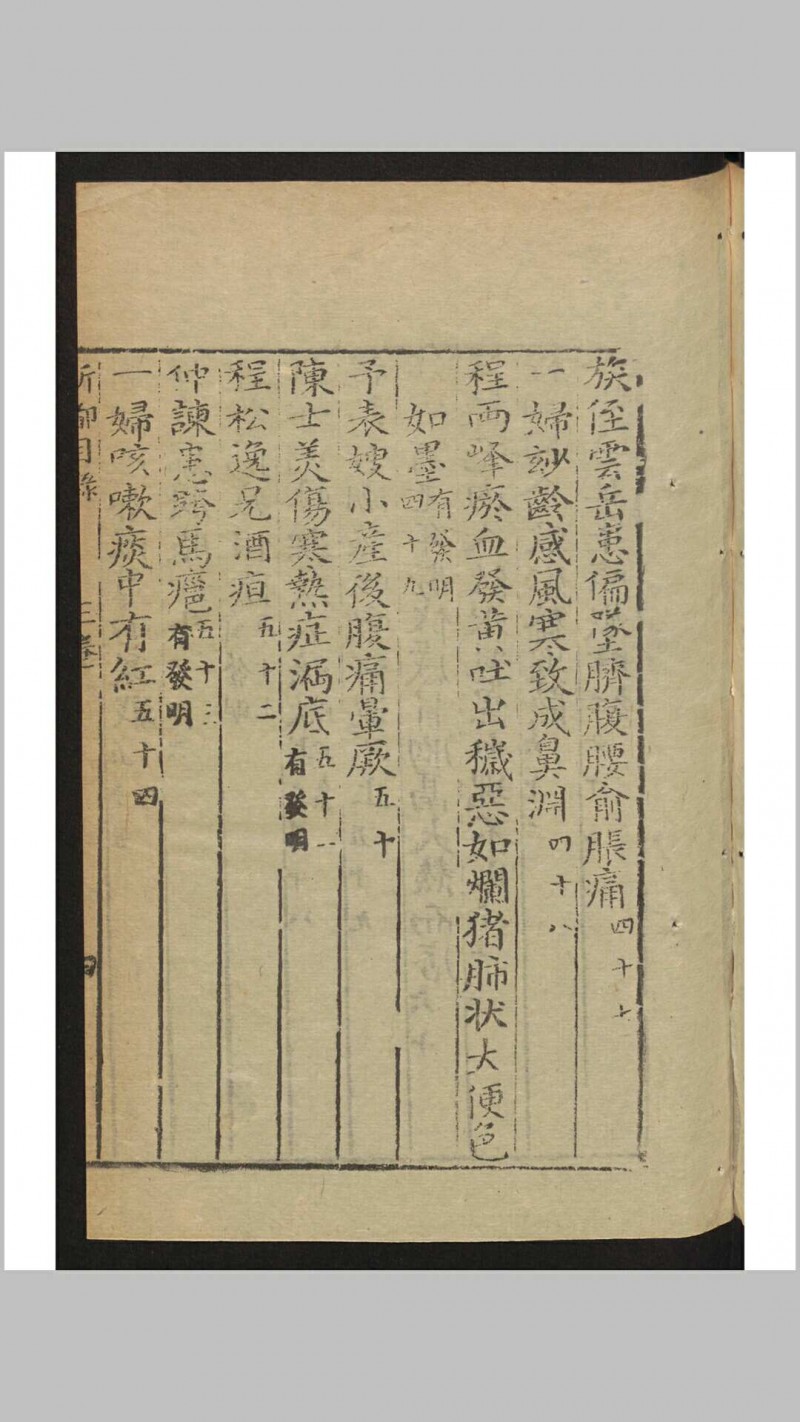 族侄雲岳患偏墜臍腹腰俞脹痛四十七
一婦玅齡感風寒致成鼻淵四十八
程兩峰瘀血發黄吐出穢惡如爛猪肺状大便色
如墨有發明四十九
予表嫂小產後腹痛暈厥五十
陳士美傷寒熱症漏底五十一有發明
程松逸兄酒疸五十二
仲諫患跨馬癰五十三有發明
一婦咳嗽痰中有紅五十四
目錄 三卷 四